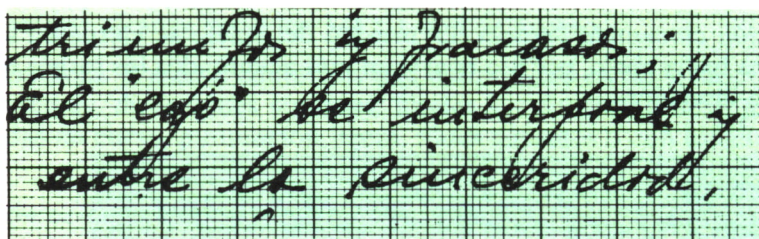 triunfos y fracasos;
El "ego" se interpone y
entre la sinceridad,